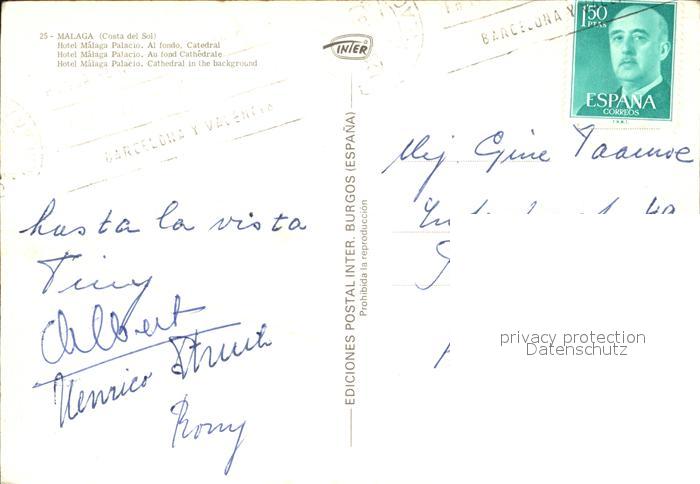 25 - MALAGA (Costa del Sol)
Hotel Málaga Palacio. Al fondo, Catedral
Hotel Málaga Palacio. Au fond Cathédrale
Hotel Málaga Palacio. Cathedral in the background
INTER
BARCELONA Y
1'50
PTAS
ESPAÑA
CORREOS
BARCELONA Y VALENCIA
hasta la vista
Tiny
Albert
Henrico
Romy
EDICIONES POSTAL INTER. BURGOS (ESPAÑA)
Prohibida la reproducción
privacy protection
Datenschutz